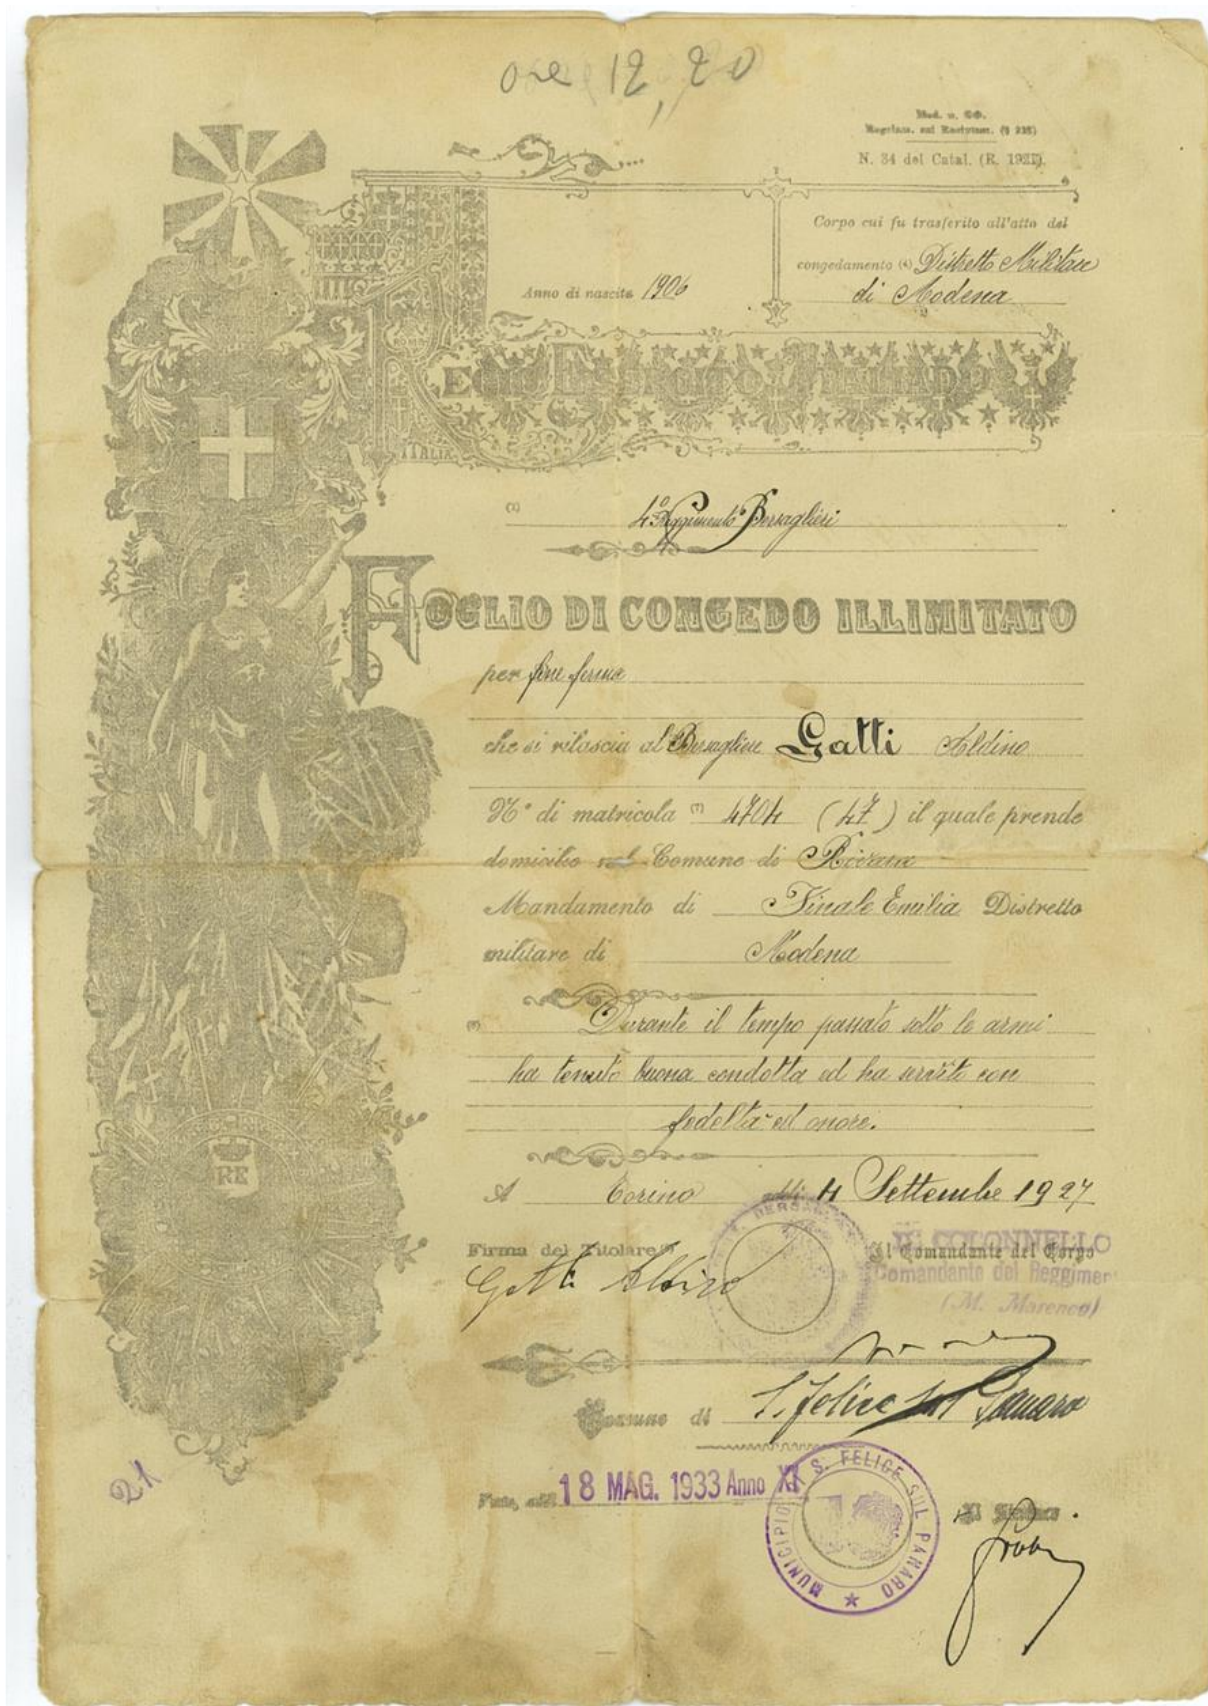 ore 12,20
N. 34 del Catal. (R. 1921).
Corpo cui fu trasferito all'atto del
congedamento (4) Distretto Militare
di Modena
Anno di nascita 1906
REGIO ESERCITO ITALIANO
ITALIA
4° Reggimento Bersaglieri
FOGLIO DI CONGEDO ILLIMITATO
per fine ferma
che si rilascia al Bersagliere Gatti Aldino
N° di matricola 4704 (47) il quale prende
domicilio nel Comune di
Mandamento di Finale Emilia Distretto
militare di Modena
Durante il tempo passato sotto le armi
ha tenuto buona condotta ed ha servito con
fedeltà ed onore.
RE
A Torino addì 4 Settembre 1927
Firma del Titolare
Il Comandante del Corpo
IL COLONNELLO
Comandante del Reggimen
(M. Marenco)
Gatti
Comune di S. Felice sul Panaro
Visto, addì 18 MAG. 1933 Anno XI
MUNICIPIO S. FELICE SUL PANARO
Il Sindaco
21